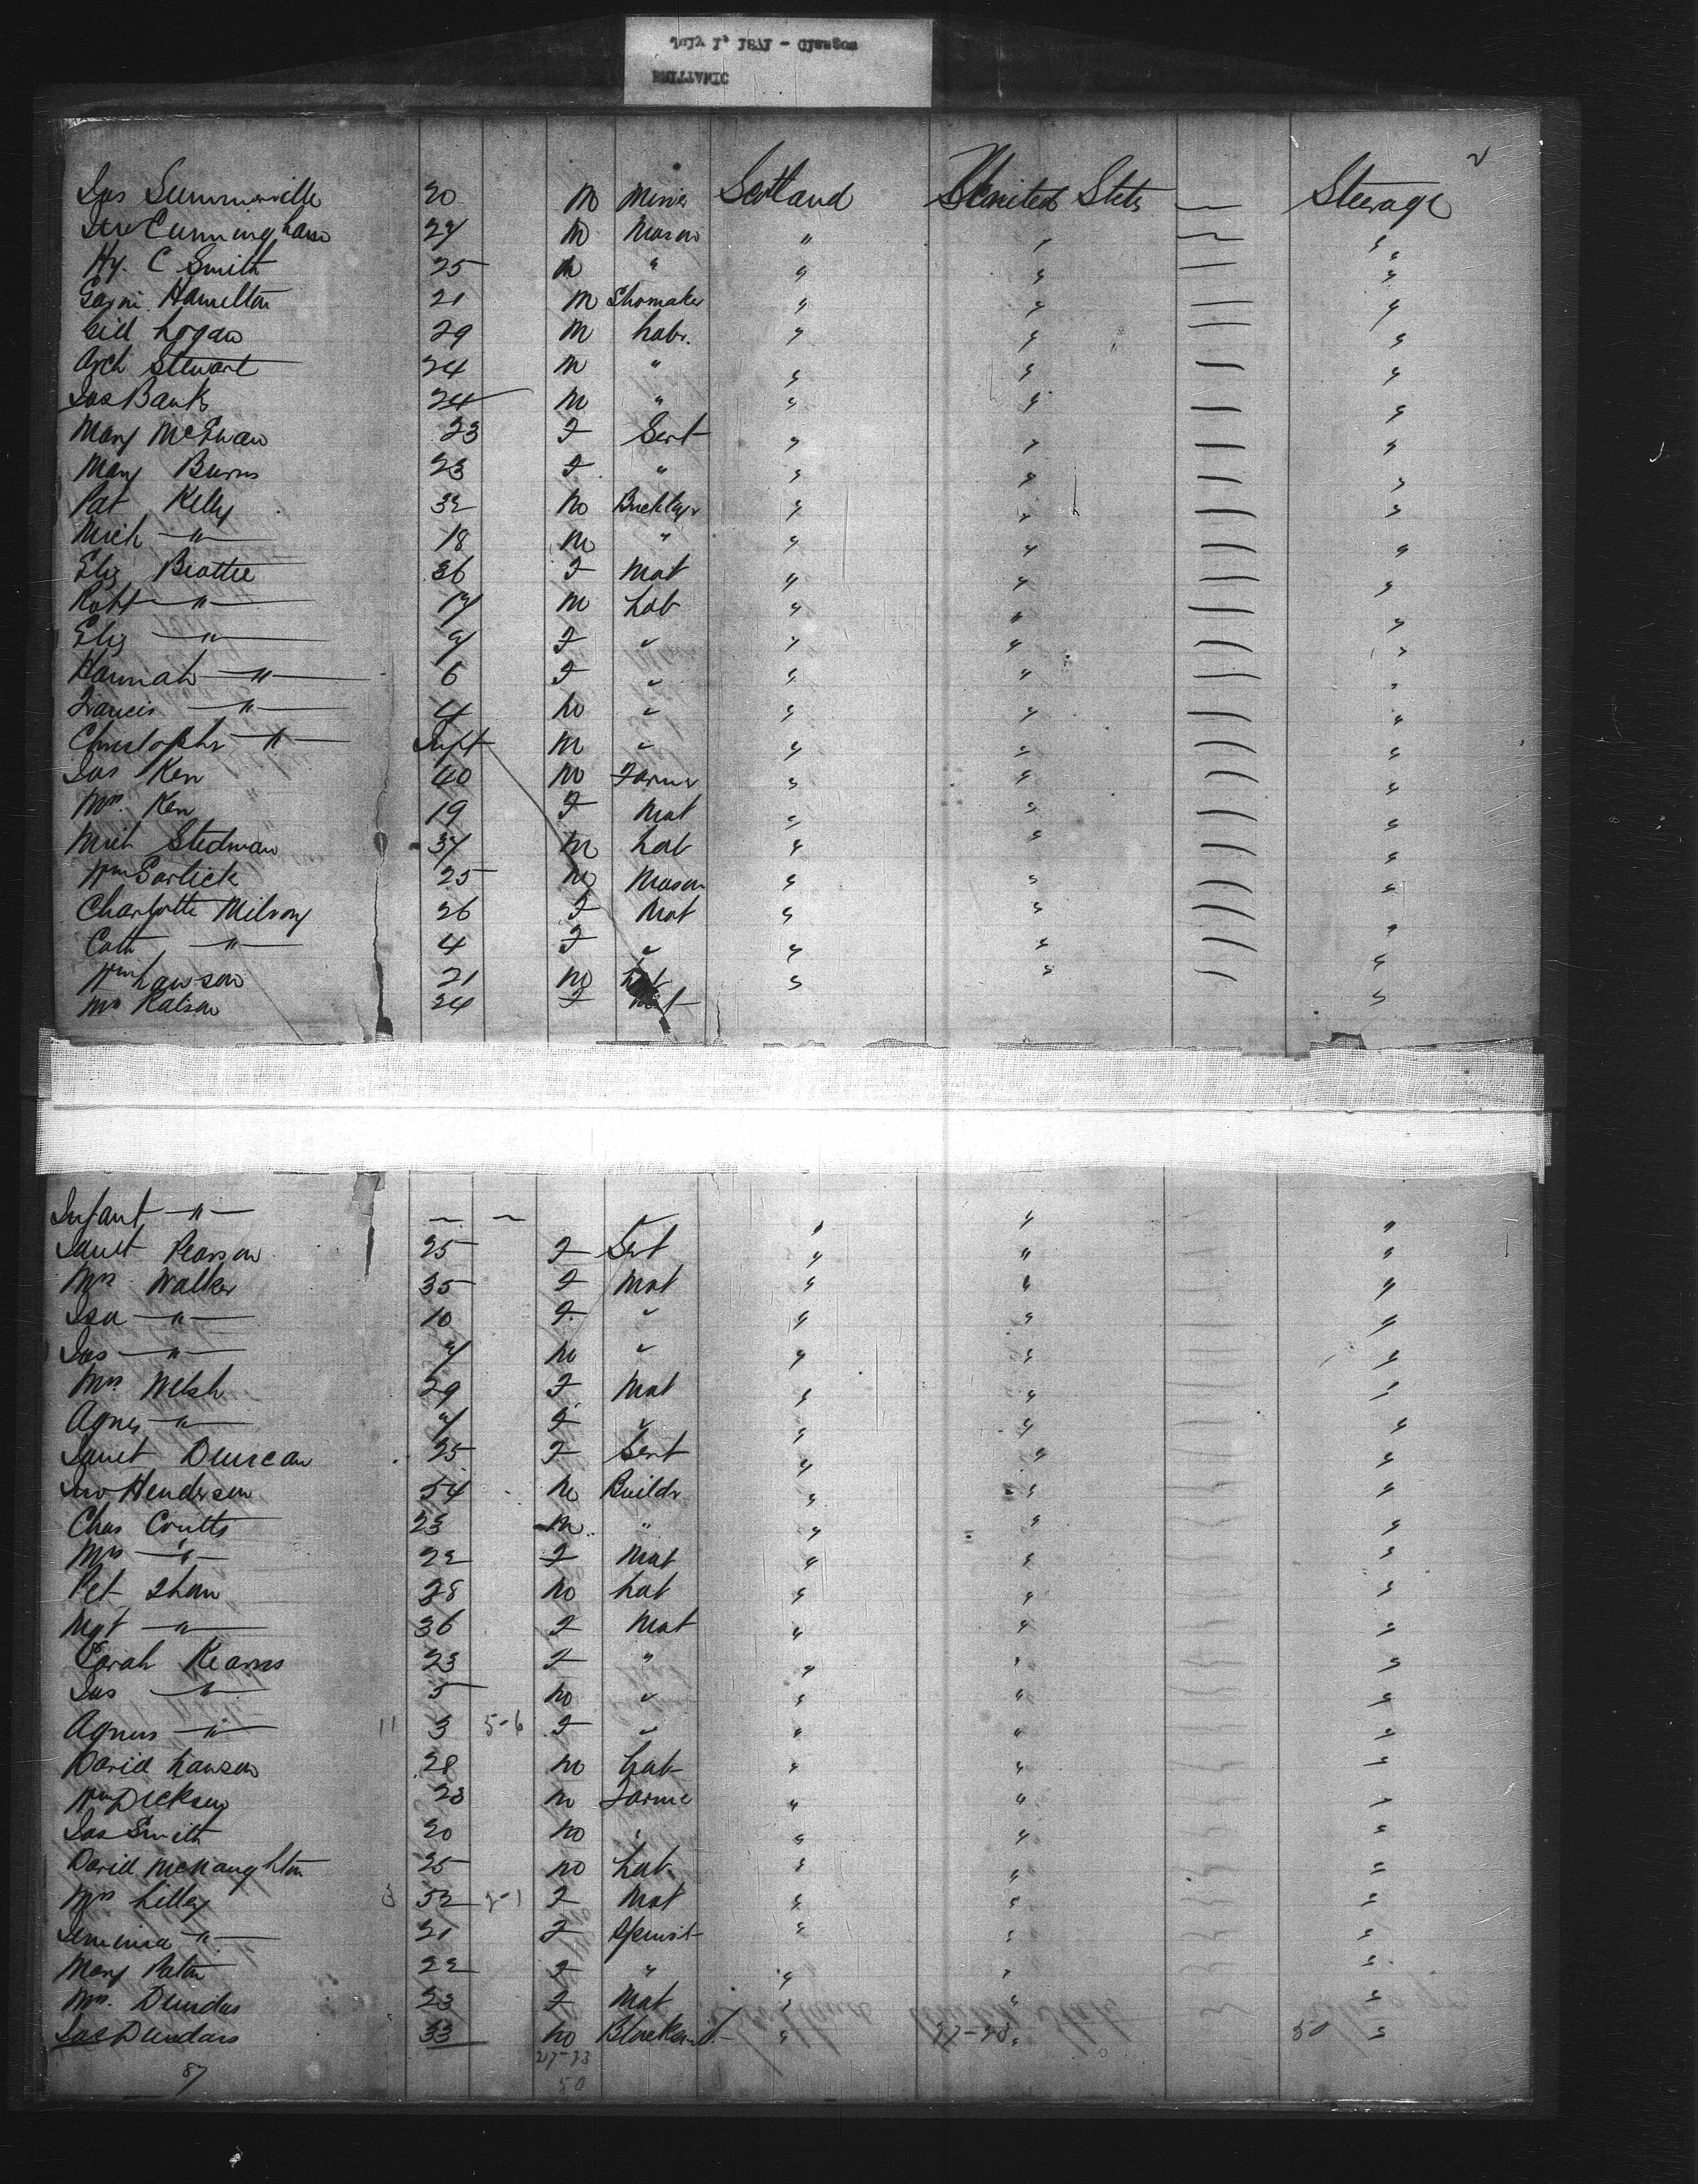 Jas Summerville 20 M Miner Scotland United States — Steerage
Jno Cunningham 27 M Mason " " — "
Hy. C Smith 25 M " " " — "
Hamilton 21 M Shomaker " " — "
Logan 29 M Labr. " " — "
Arch Stewart 24 M " " " — "
Jas Banks 24 M " " " — "
Mary McEwan 23 F Sert " " — "
Mary Burns 23 F " " " — "
Pat Kelly 32 M Bricklayr " " — "
Mich — " — 18 M " " " — "
Eliz Beattie 36 F Mat " " — "
Robt — " — 17 M Lab " " — "
Eliz — " — 9 F " " " — "
Hannah — " — 6 F " " " — "
Francis — " — 4 M " " " — "
Christophr — " — Inft M " " " — "
Jas Kerr 40 M Farmer " " — "
Mrs. Kerr 19 F Mat " " — "
Mich Stedman 37 M Lab " " — "
Wm 25 M Mason " " — "
Charlotte Milroy 26 F Mat " " — "
Cath — " — 4 F " " " — "
Wm Lawson 21 M Lab " " — "
Mrs Ralson 24 F Mat "
Infant — " — — — " " "
Janet Pearson 25 F Sert " " "
Mrs Walker 35 F Mat " " "
Isa — " — 10 F " " " "
Jas — " — 7 M " " " "
Mrs Welsh 29 F Mat " " "
Agnes — " — 7 F " " " "
Janet Duncan 25 F Sert " " "
Jno Henderson 54 M Buildr " " "
Chas Coutts 23 M " " " "
Mrs — " — 22 F Mat " " "
Pet Shaw 28 M Lab " " "
Mgt — " — 36 F Mat " " "
Sarah Kearns 23 F " " " "
Jas — " — 5 M " " " "
Agnes — " — 11 3 5-6 F " " " "
David Lawson 28 M Lab " " "
Wm Dickson 23 M Farmer " " "
Jas Smith 20 M " " " "
David McNaughton 25 M Lab " " "
Mrs Lilley 52 2-1 F Mat " " "
Jemima — " — 21 F Spinst " " "
Mary Paton 22 F " " " "
Mrs. Dundas 23 F Mat " " "
Jas Dundas 33 M Blacksmt " 27-23 " 50 "
87 27-23
50